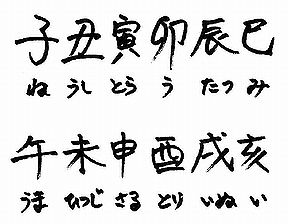 子丑寅卯辰巳
ね うし とら う たつ み
午未申酉戌亥
うま ひつじ さる とり いぬ い